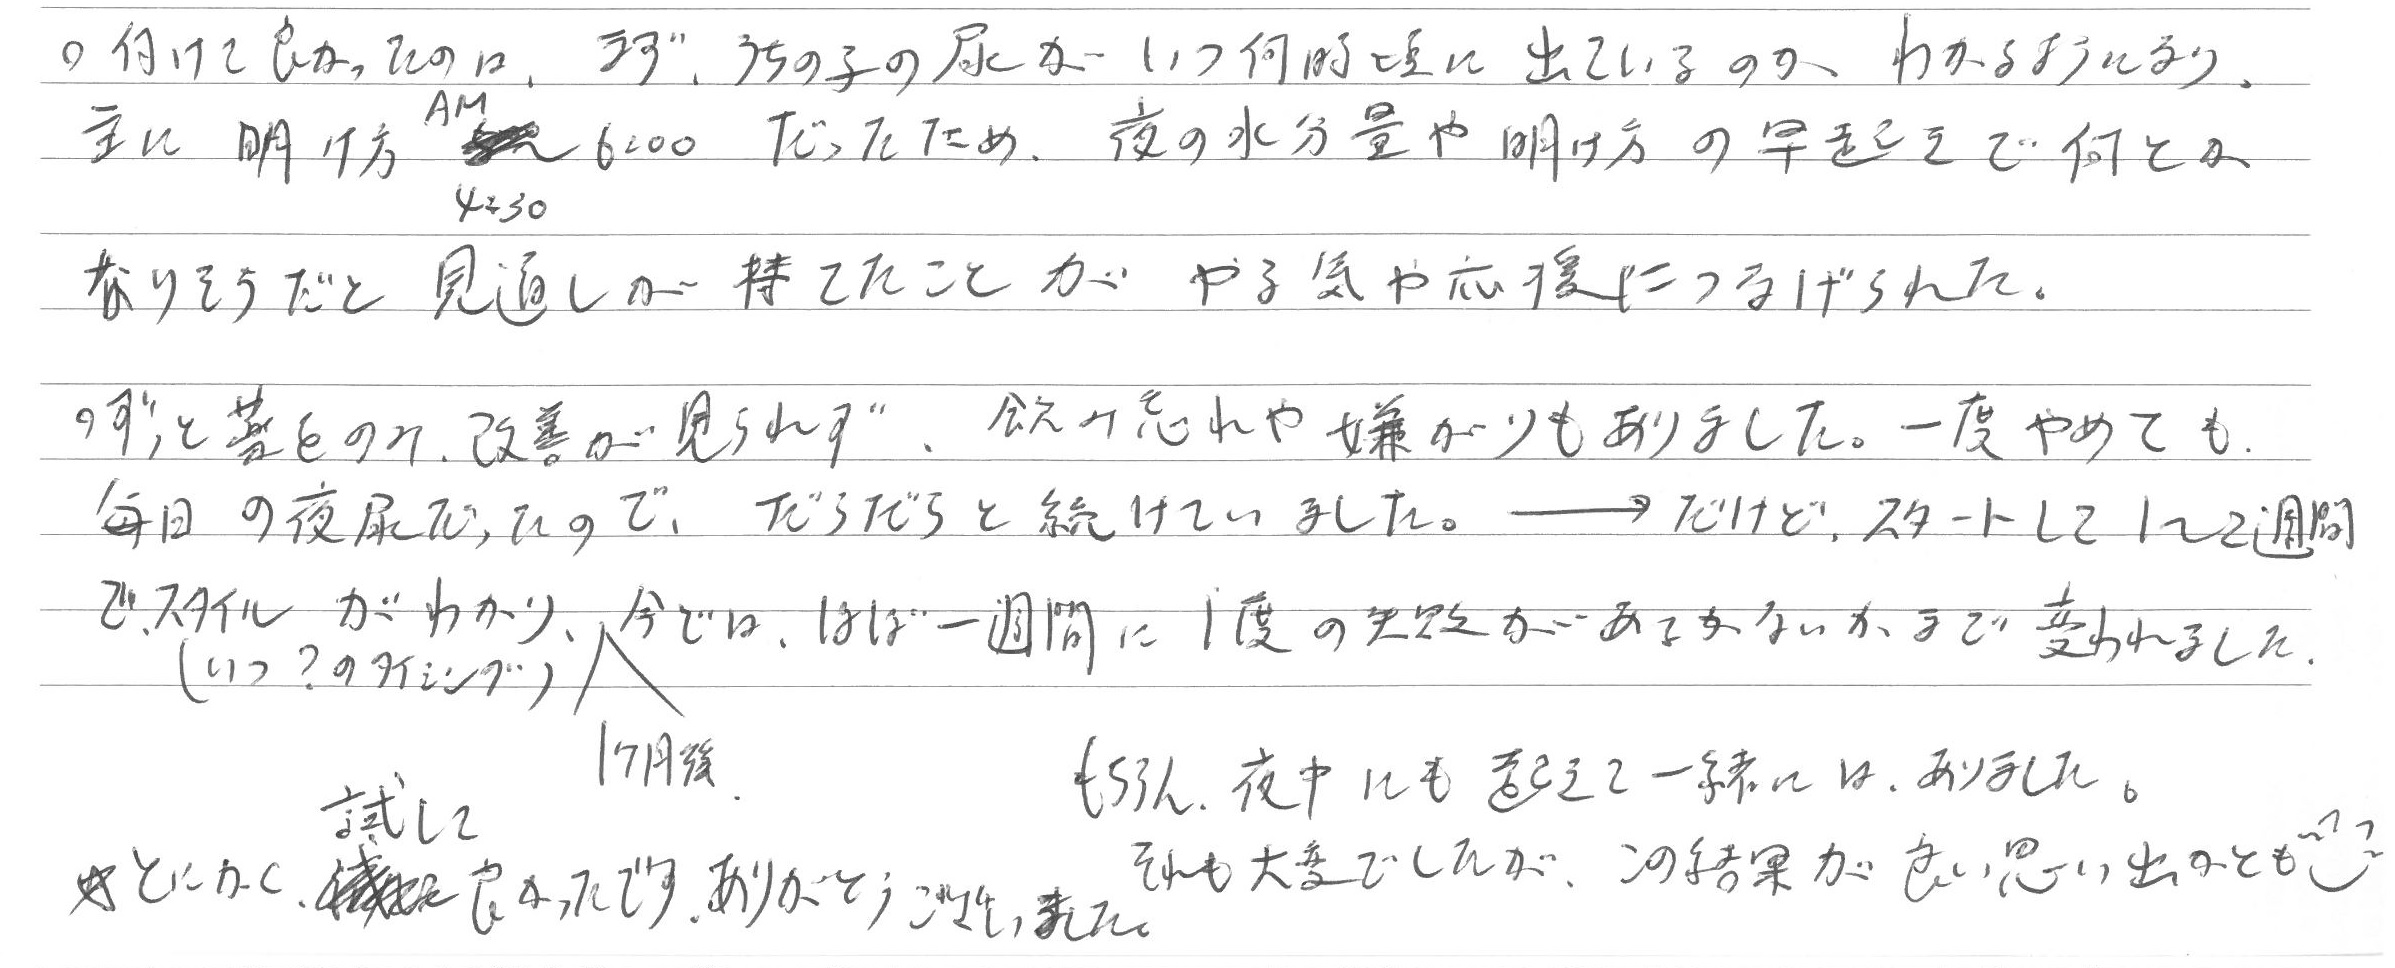 ○付けて良かったのは、まず、うちの子の尿がいつ何時頃に出ているのか、わかるようになり、
AM
主に明け方 6:00 だったため、夜の水分量や明け方の早起きで何とか
4:30
なりそうだと見通しが持てたことがやる気や応援につなげられた。
○ずっと薬をのみ、改善が見られず、飲み忘れや嫌がりもありました。一度やめても、
毎日の夜尿だったので、だらだらと続けていました。→だけど、スタートして1〜2週間
で、スタイルがわかり、今では、ほぼ一週間に1度の失敗があるかないか、まで変われました。
(いつ?のタイミング)
1ヶ月後
もちろん、夜中にも起きて一緒には、ありました。
試して
それも大変でしたが、この結果が良い思い出かとも
とにかく、良かったです。ありがとうございました。